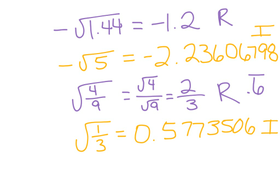 -√1.44 = -1.2 R
-√5 = -2.23606798 I
√(4/9) = √4/√9 = 2/3 R .6̅
√(1/3) = 0.5773506 I